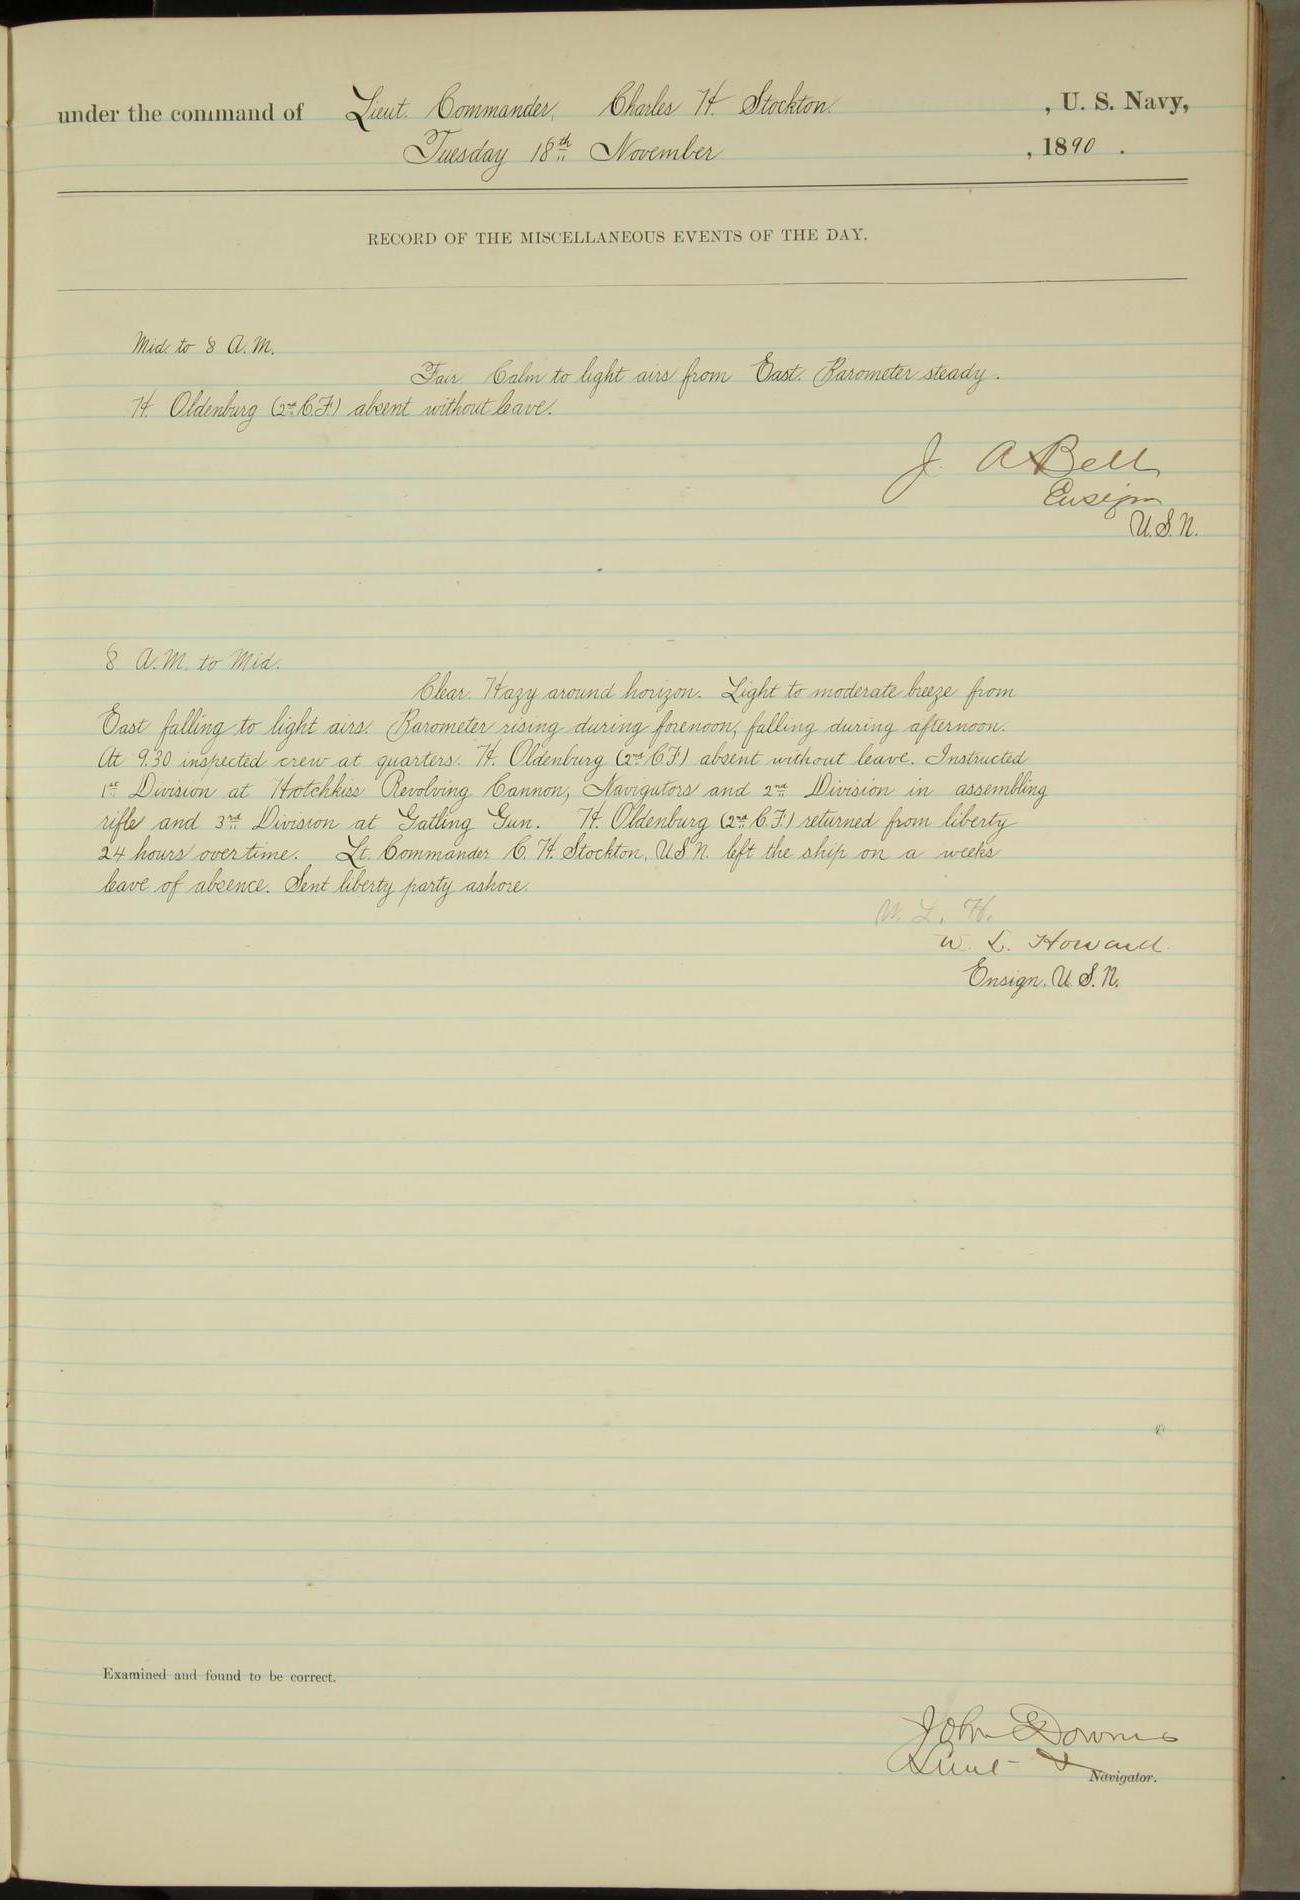 under the command of Lieut. Commander, Charles H. Stockton. , U. S. Navy,
Tuesday 18th November , 1890 .
RECORD OF THE MISCELLANEOUS EVENTS OF THE DAY.
Mid. to 8 A.M.
Fair. Calm to light airs from East. Barometer steady.
H. Oldenburg (2nd C.F.) absent without leave.
J. A Bell
Ensign
U.S.N.
8 A.M. to Mid.
Clear. Hazy around horizon. Light to moderate breeze from
East falling to light airs. Barometer rising during forenoon, falling during afternoon.
At 9.30 inspected crew at quarters. H. Oldenburg (2nd C.F.) absent without leave. Instructed
1st Division at Hotchkiss Revolving Cannon, Navigators and 2nd Division in assembling
rifle and 3rd Division at Gatling Gun. H. Oldenburg (2nd C.F.) returned from liberty
24 hours overtime. Lt. Commander C. H. Stockton, U.S.N. left the ship on a weeks
leave of absence. Sent liberty party ashore.
W. L. H.
W. L. Howard.
Ensign, U.S.N.
Examined and found to be correct.
John Downes
Lieut &
Navigator.